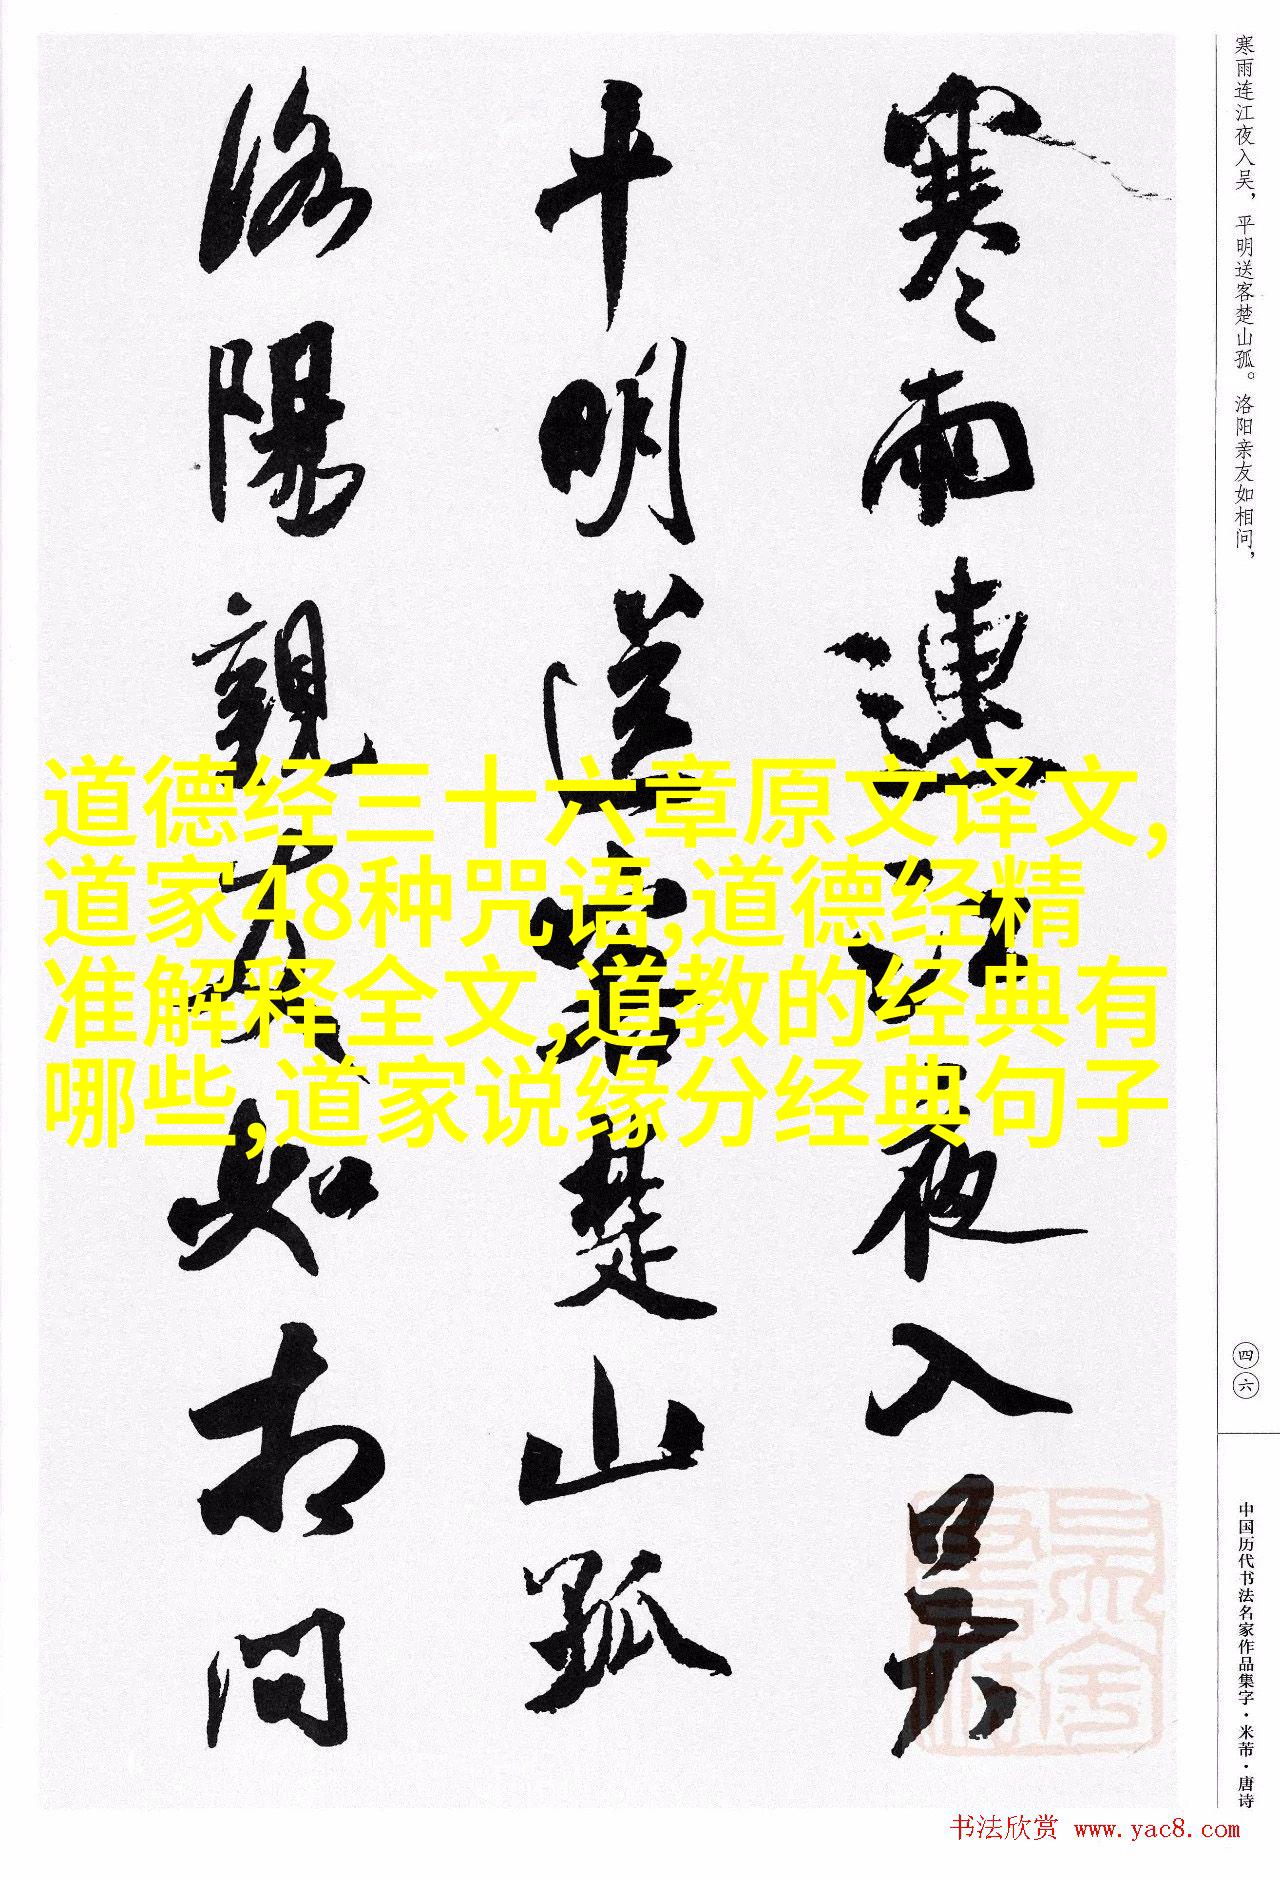 寒雨連江夜入吴
平明送客楚山孤
洛陽親友如相问
道德经三十六章原文译文,
道家48种咒语,道德经精
准解释全文,道教的经典有
哪些,道家说缘分经典句子
寒雨连江夜入吴，平明送客楚山孤。洛阳亲友如相问，
四六
中国历代书法名家作品集字·米芾·唐诗
书法欣赏 www.yac8.com